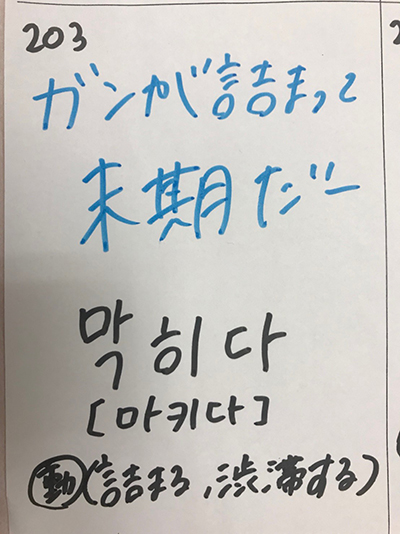 203
ガンが詰まって
末期だー
막히다
[마키다]
動(詰まる,渋滞する)